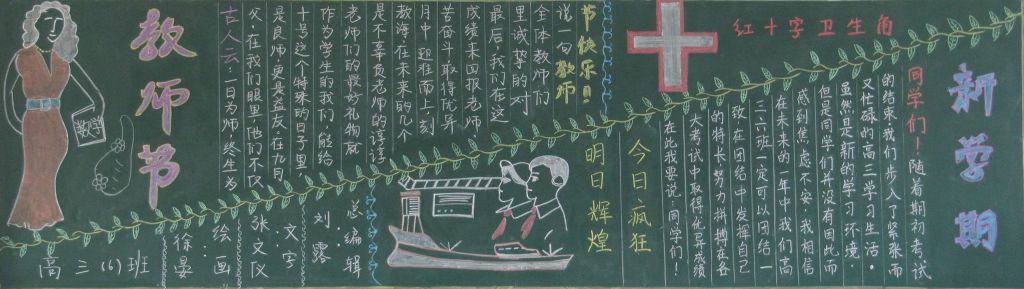 新学期
红十字卫生角
同学们！随着期初考试
的结束我们步入了紧张而
又忙碌的高三学习生活。
虽然是新的学习环境，
但是同学们并没有因此而
感到焦虑不安，我相信
在未来的一年中我们高
三六班一定可以团结一
致在团结中发挥自己
的特长努力拼搏在各
大考试中取得优异成绩
在此我要说：同学们！
今日疯狂
明日辉煌
教师节
古人云：一日为师，终生为
父，在我们眼里，他们不仅
是良师，更是益友，在九月
十号这个特殊的日子里，
作为学生的我们，能给
老师们的最好礼物就
是不辜负老师的谆谆
教诲在未来的几个
月中起准面上，刻
苦奋斗取得优异
成绩来回报老师，
最后，我们在这
里诚挚的对
全体教师们
说一句教师
节快乐！
教学
总编辑
刘露
文字：
张文仪
绘画：
徐晏
高三(6)班